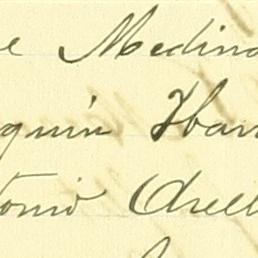 e Medina
quin Ibar
tonio Orell